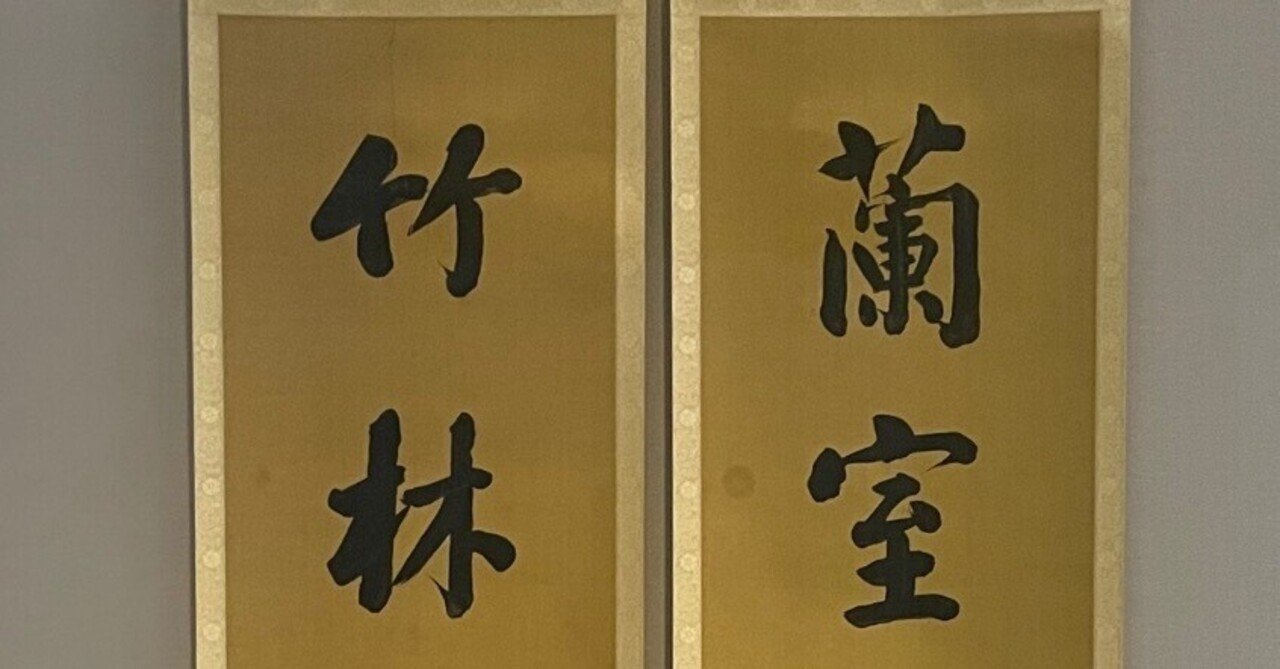 蘭室
竹林